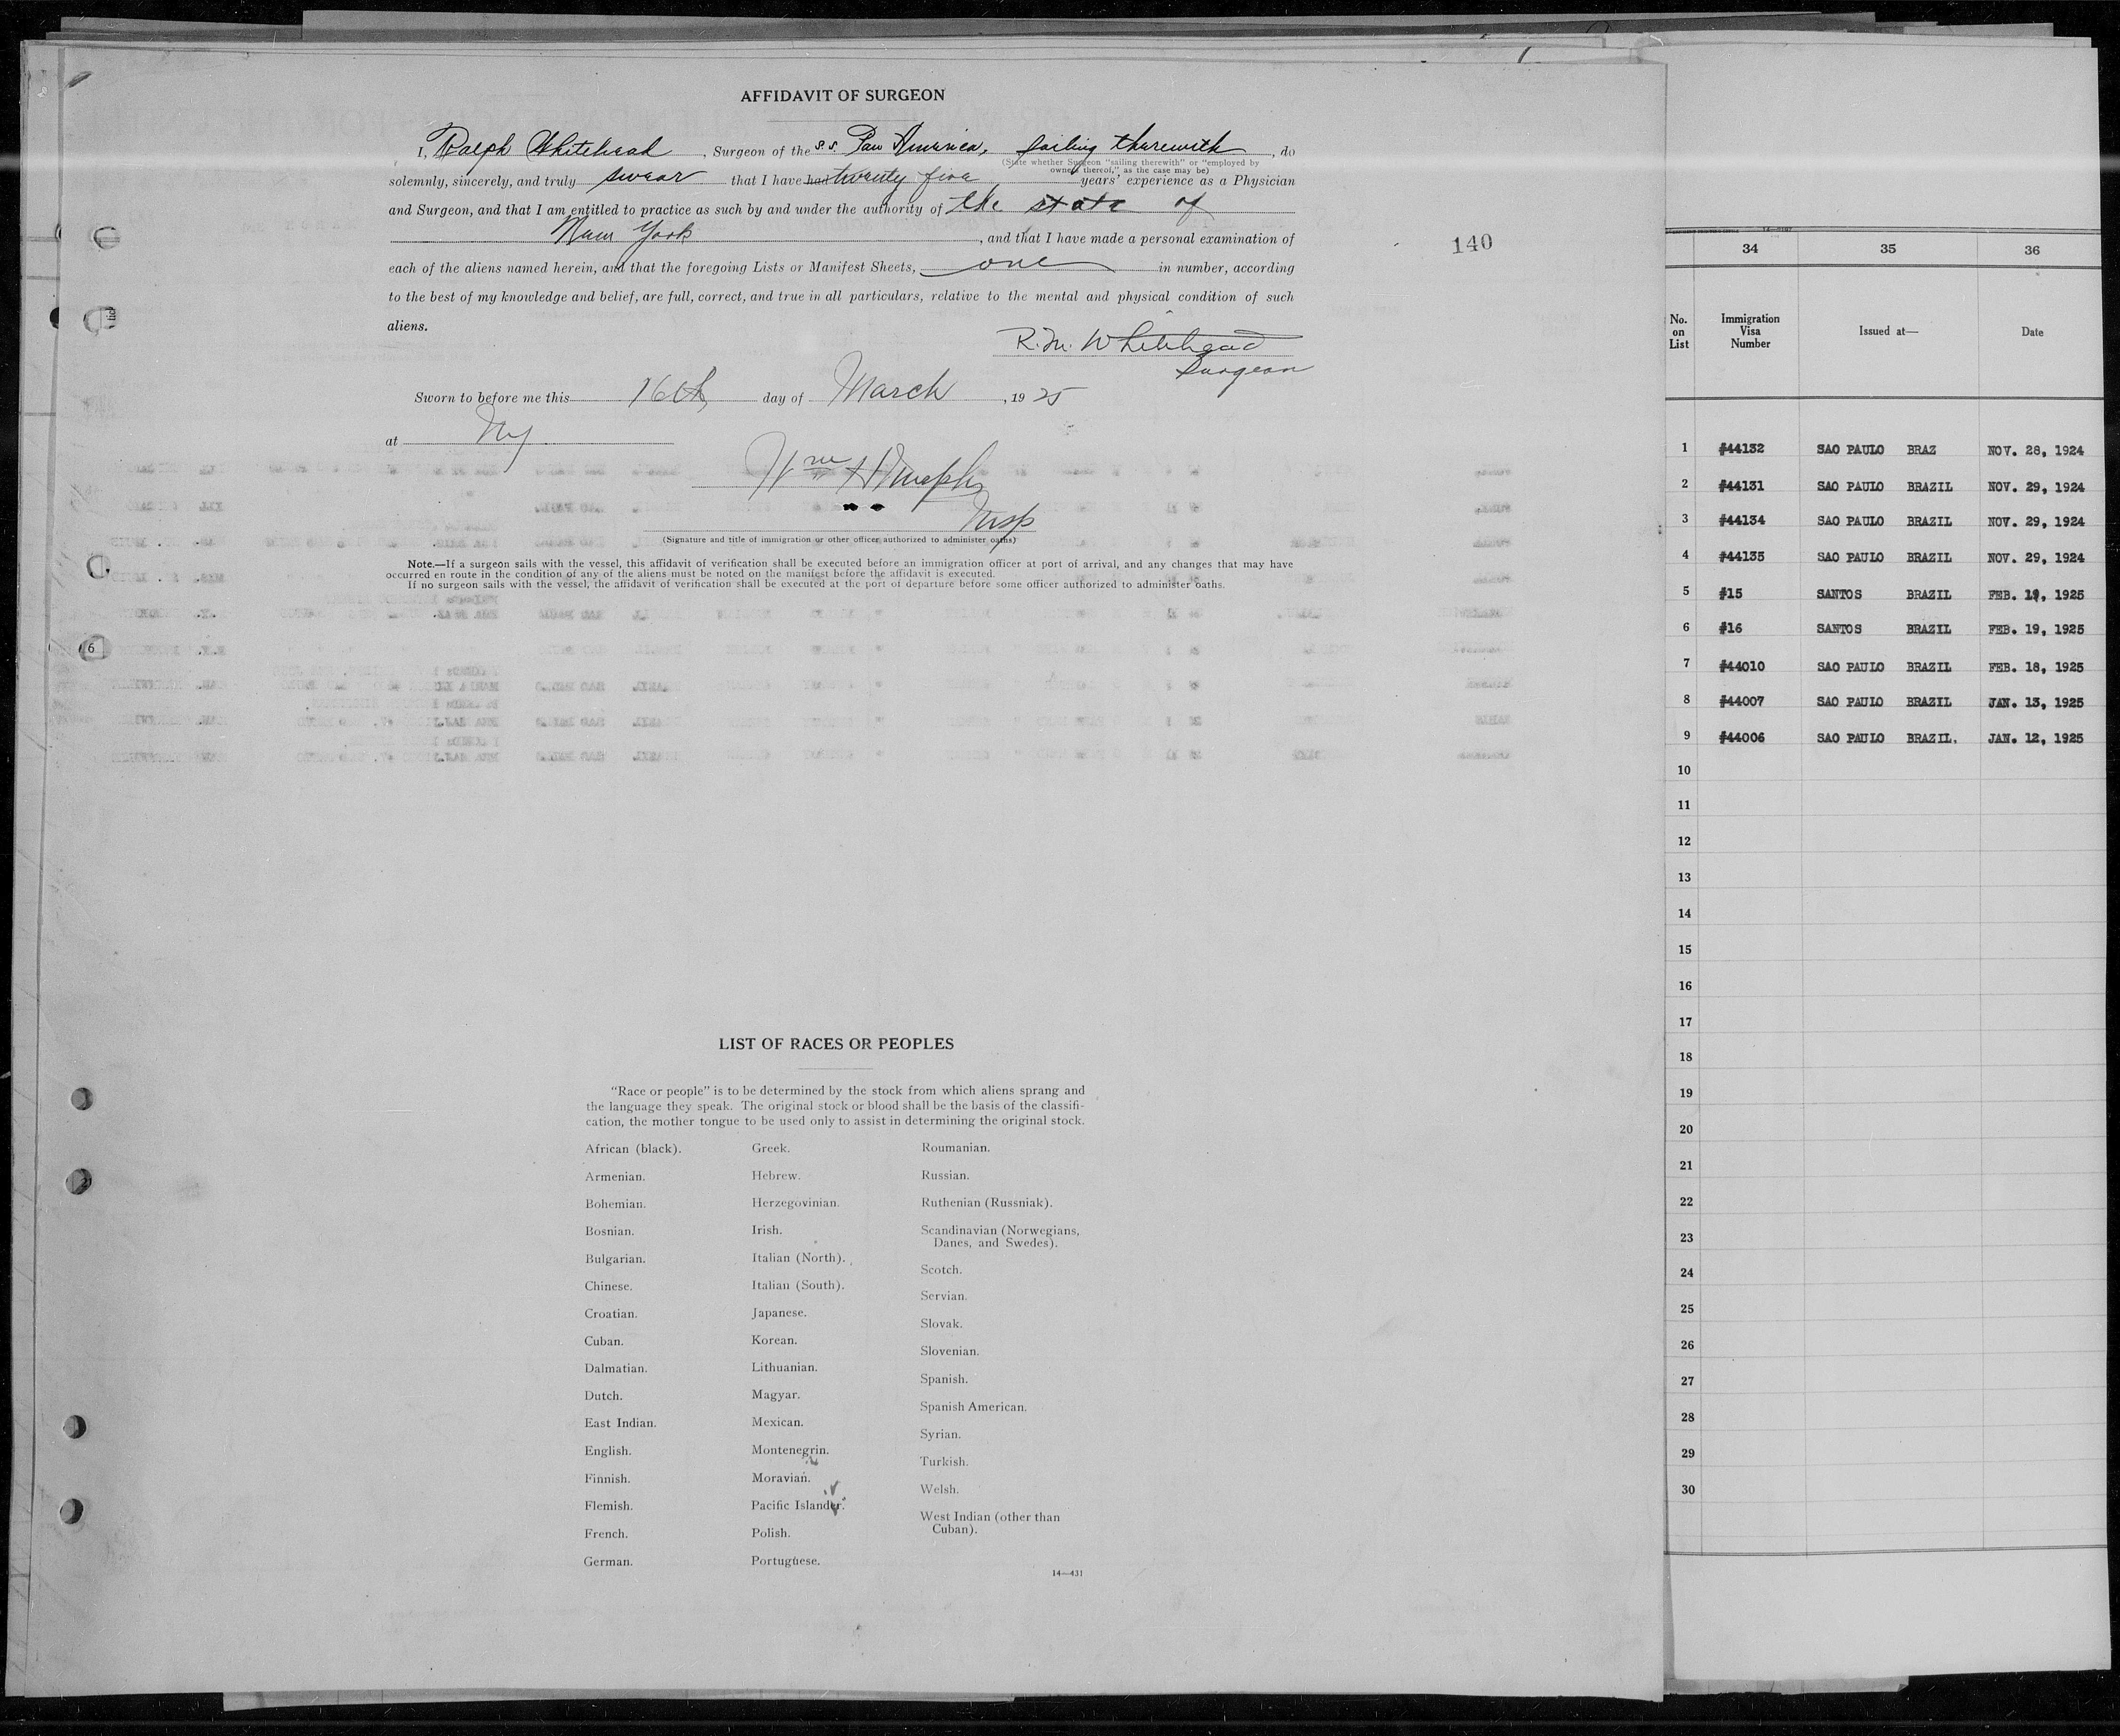 AFFIDAVIT OF SURGEON
I, Ralph Whitehead, Surgeon of the S.S. Pan America, sailing therewith, do
(State whether Surgeon "sailing therewith" or "employed by
owners thereof," as the case may be)
solemnly, sincerely, and truly swear that I have had twenty five years' experience as a Physician
and Surgeon, and that I am entitled to practice as such by and under the authority of the state of
New York, and that I have made a personal examination of
each of the aliens named herein, and that the foregoing Lists or Manifest Sheets, one in number, according
to the best of my knowledge and belief, are full, correct, and true in all particulars, relative to the mental and physical condition of such
aliens.
R. M. Whitehead
Surgeon
Sworn to before me this 16th day of March, 1925
at NY
Wm H Murphy
Insp
(Signature and title of immigration or other officer authorized to administer oaths)
Note.—If a surgeon sails with the vessel, this affidavit of verification shall be executed before an immigration officer at port of arrival, and any changes that may have
occurred en route in the condition of any of the aliens must be noted on the manifest before the affidavit is executed.
If no surgeon sails with the vessel, the affidavit of verification shall be executed at the port of departure before some officer authorized to administer oaths.
140
6
LIST OF RACES OR PEOPLES
"Race or people" is to be determined by the stock from which aliens sprang and
the language they speak. The original stock or blood shall be the basis of the classifi-
cation, the mother tongue to be used only to assist in determining the original stock.
African (black).
Armenian.
Bohemian.
Bosnian.
Bulgarian.
Chinese.
Croatian.
Cuban.
Dalmatian.
Dutch.
East Indian.
English.
Finnish.
Flemish.
French.
German.
Greek.
Hebrew.
Herzegovinian.
Irish.
Italian (North).
Italian (South).
Japanese.
Korean.
Lithuanian.
Magyar.
Mexican.
Montenegrin.
Moravian.
Pacific Islander.
Polish.
Portuguese.
Roumanian.
Russian.
Ruthenian (Russniak).
Scandinavian (Norwegians,
Danes, and Swedes).
Scotch.
Servian.
Slovak.
Slovenian.
Spanish.
Spanish American.
Syrian.
Turkish.
Welsh.
West Indian (other than
Cuban).
14—431
34 35 36
No. on List Immigration Visa Number Issued at— Date
1 #44132 SAO PAULO BRAZ NOV. 28, 1924
2 #44131 SAO PAULO BRAZIL NOV. 29, 1924
3 #44134 SAO PAULO BRAZIL NOV. 29, 1924
4 #44135 SAO PAULO BRAZIL NOV. 29, 1924
5 #15 SANTOS BRAZIL FEB. 19, 1925
6 #16 SANTOS BRAZIL FEB. 19, 1925
7 #44010 SAO PAULO BRAZIL FEB. 18, 1925
8 #44007 SAO PAULO BRAZIL JAN. 13, 1925
9 #44006 SAO PAULO BRAZIL. JAN. 12, 1925
10
11
12
13
14
15
16
17
18
19
20
21
22
23
24
25
26
27
28
29
30